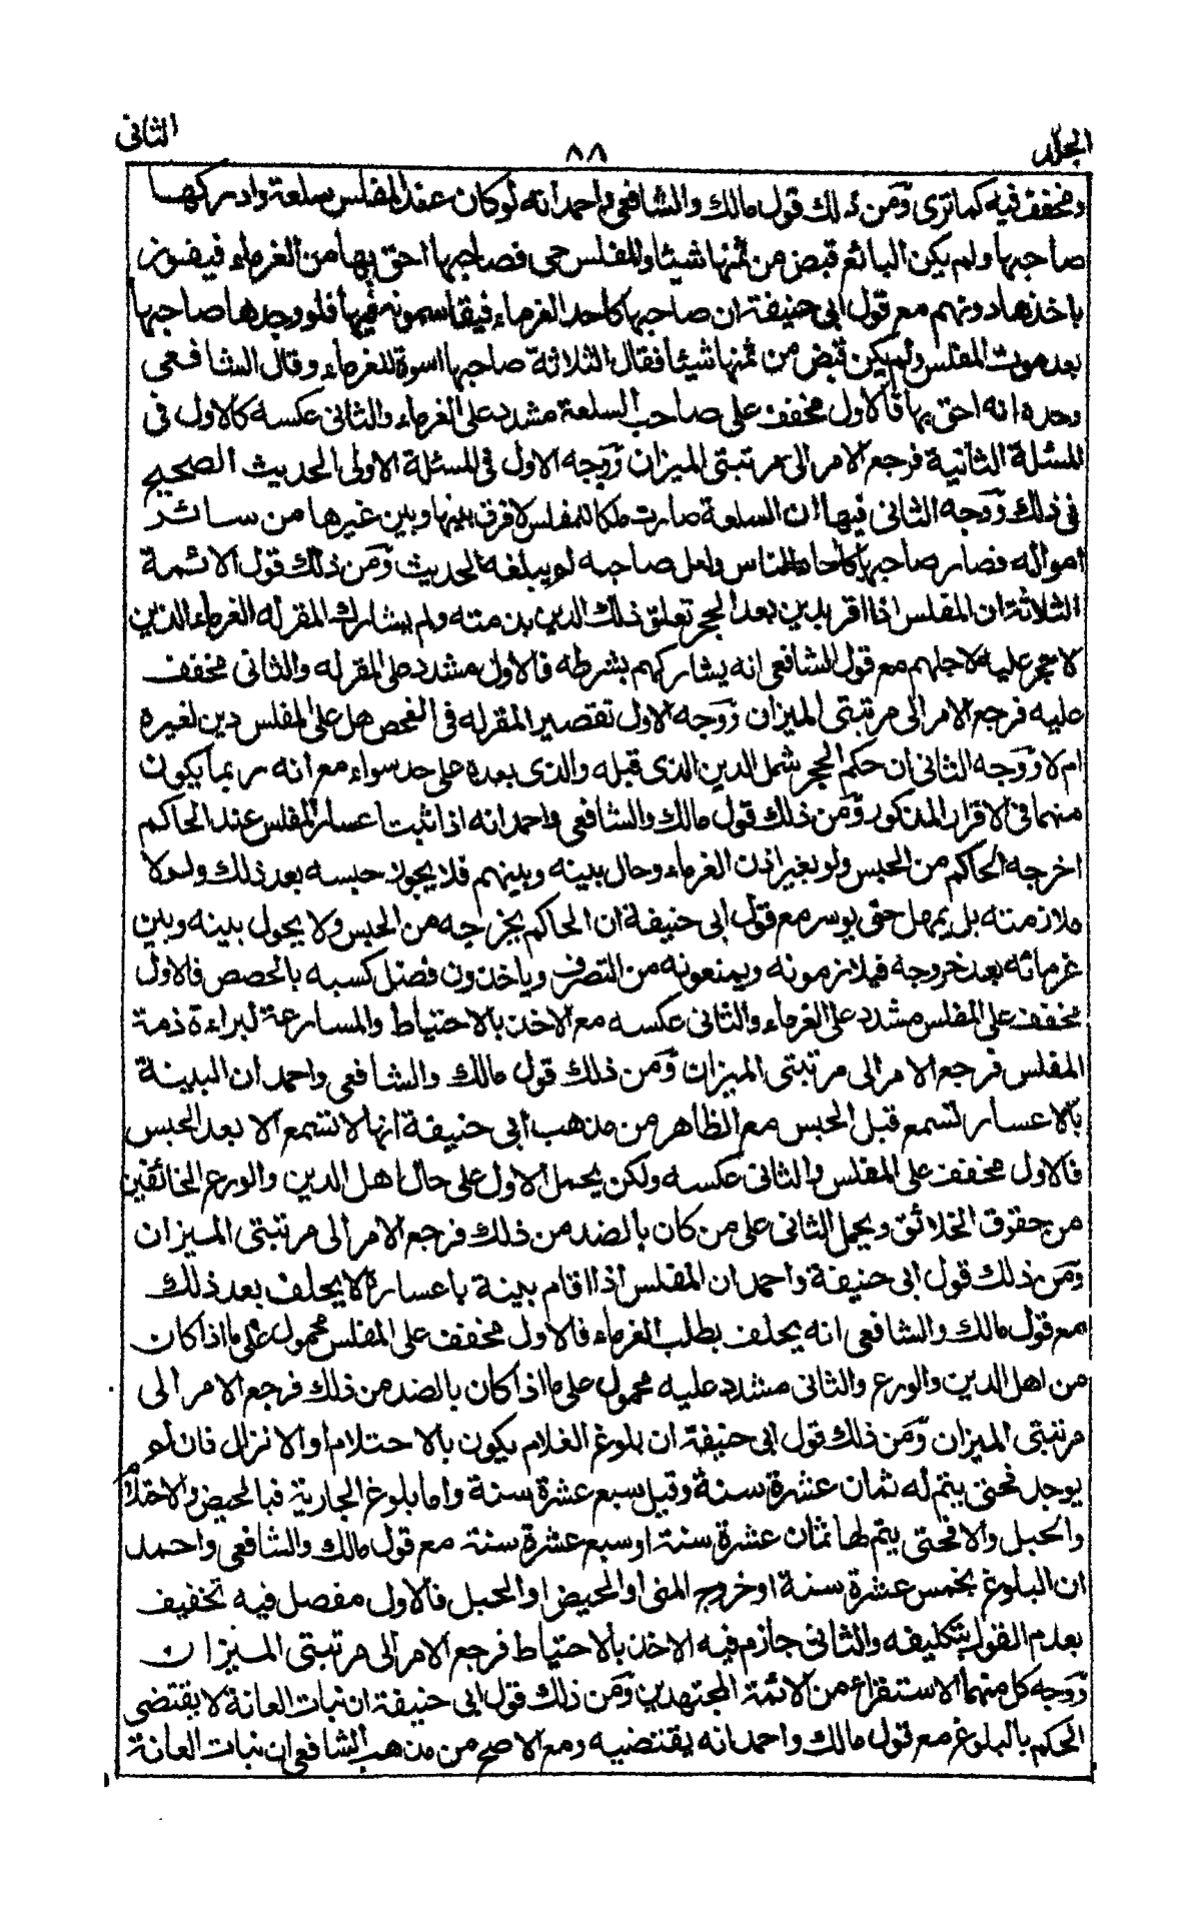 الجلد ٨٨ الثانى
ومخفف فيه كما ترى ومن ذلك قول مالك والشافعى واحمد انه لو كان عند المفلس سلعة وادركها
صاحبها ولم يكن البائع قبض من ثمنها شيئا والمفلس حى فصاحبها احق بها من الغرماء فيفوز
باخذها دونهم مع قول ابى حنيفة ان صاحبها كاحد الغرماء فيقاسمونه فيها فلو وجدها صاحبها
بعد موت المفلس ولم يكن قبض من ثمنها شيئا فقال الثلاثة صاحبها اسوة للغرماء وقال الشافعى
وحده انه احق بها فالاول مخفف على صاحب السلعة مشدد على الغرماء والثانى عكسه كالاول فى
المسئلة الثانية فرجع الامر الى مرتبتى الميزان ووجه الاول فى المسئلة الاولى الحديث الصحيح
فى ذلك ووجه الثانى فيها ان السلعة صارت ملكا للمفلس لا فرق بينها وبين غيرها من سائر
امواله فصار صاحبها كاحاد الناس ولعل صاحبه لو يبلغه الحديث ومن ذلك قول الائمة
الثلاثة ان المفلس اذا اقر بدين بعد الحجر تعلق ذلك الدين بذمته ولم يشارك المقر له الغرماء الذين
لا حجر عليه لاجلهم مع قول الشافعى انه يشاركهم بشرطه فالاول مشدد على المقر له والثانى مخفف
عليه فرجع الامر الى مرتبتى الميزان ووجه الاول تقصير المقر له فى الفحص هل على المفلس دين لغيره
ام لا ووجه الثانى ان حكم الحجر شمل الدين الذى قبله والذى بعده على حد سواء مع انه ربما يكون
منهما فى الاقرار المذكور ومن ذلك قول مالك والشافعى واحمد انه اذا ثبت اعسار المفلس عند الحاكم
اخرجه الحاكم من الحبس ولو بغير اذن الغرماء وحال بينه وبينهم فلا يجوز حبسه بعد ذلك ولولا
ملازمته بل يمهل حتى يوسر مع قول ابى حنيفة ان الحاكم يخرجه من الحبس ولا يحول بينه وبين
غرمائه بعد خروجه فيلازمونه ويمنعونه من التصرف وياخذون فضل كسبه بالحصص فالاول
مخفف على المفلس مشدد على الغرماء والثانى عكسه مع الاخذ بالاحتياط والمسارعة لبراءة ذمة
المفلس فرجع الامر الى مرتبتى الميزان ومن ذلك قول مالك والشافعى واحمد ان البينة
بالاعسار تسمع قبل الحبس مع الظاهر من مذهب ابى حنيفة انها لا تسمع الا بعد الحبس
فالاول مخفف على المفلس والثانى عكسه ولكن يحمل الاول على حال اهل الدين والورع الخائفين
من حقوق الخلائق ويحمل الثانى على من كان بالضد من ذلك فرجع الامر الى مرتبتى الميزان
ومن ذلك قول ابى حنيفة واحمد ان المفلس اذا اقام بينة باعساره لا يحلف بعد ذلك
مع قول مالك والشافعى انه يحلف بطلب الغرماء فالاول مخفف على المفلس محمول على ما اذا كان
من اهل الدين والورع والثانى مشدد عليه محمول على ما اذا كان بالضد من ذلك فرجع الامر الى
مرتبتى الميزان ومن ذلك قول ابى حنيفة ان بلوغ الغلام يكون بالاحتلام او الانزال فان لم
يوجد فحتى يتم له ثمان عشرة سنة وقيل سبع عشرة سنة واما بلوغ الجارية فبالحيض والاحتلام
والحبل والا فحتى يتم لها ثمان عشرة سنة او سبع عشرة سنة مع قول مالك والشافعى واحمد
ان البلوغ بخمس عشرة سنة او خروج المنى او الحيض او الحبل فالاول مفصل فيه تخفيف
بعدم القول بتكليفه والثانى جازم فيه الاخذ بالاحتياط فرجع الامر الى مرتبتى الميزان
ووجه كل منهما الاستقراء من الائمة المجتهدين ومن ذلك قول ابى حنيفة ان نبات العانة لا يقتضى
الحكم بالبلوغ مع قول مالك واحمد انه يقتضيه ومع الاصح من مذهب الشافعى ان نبات العانة